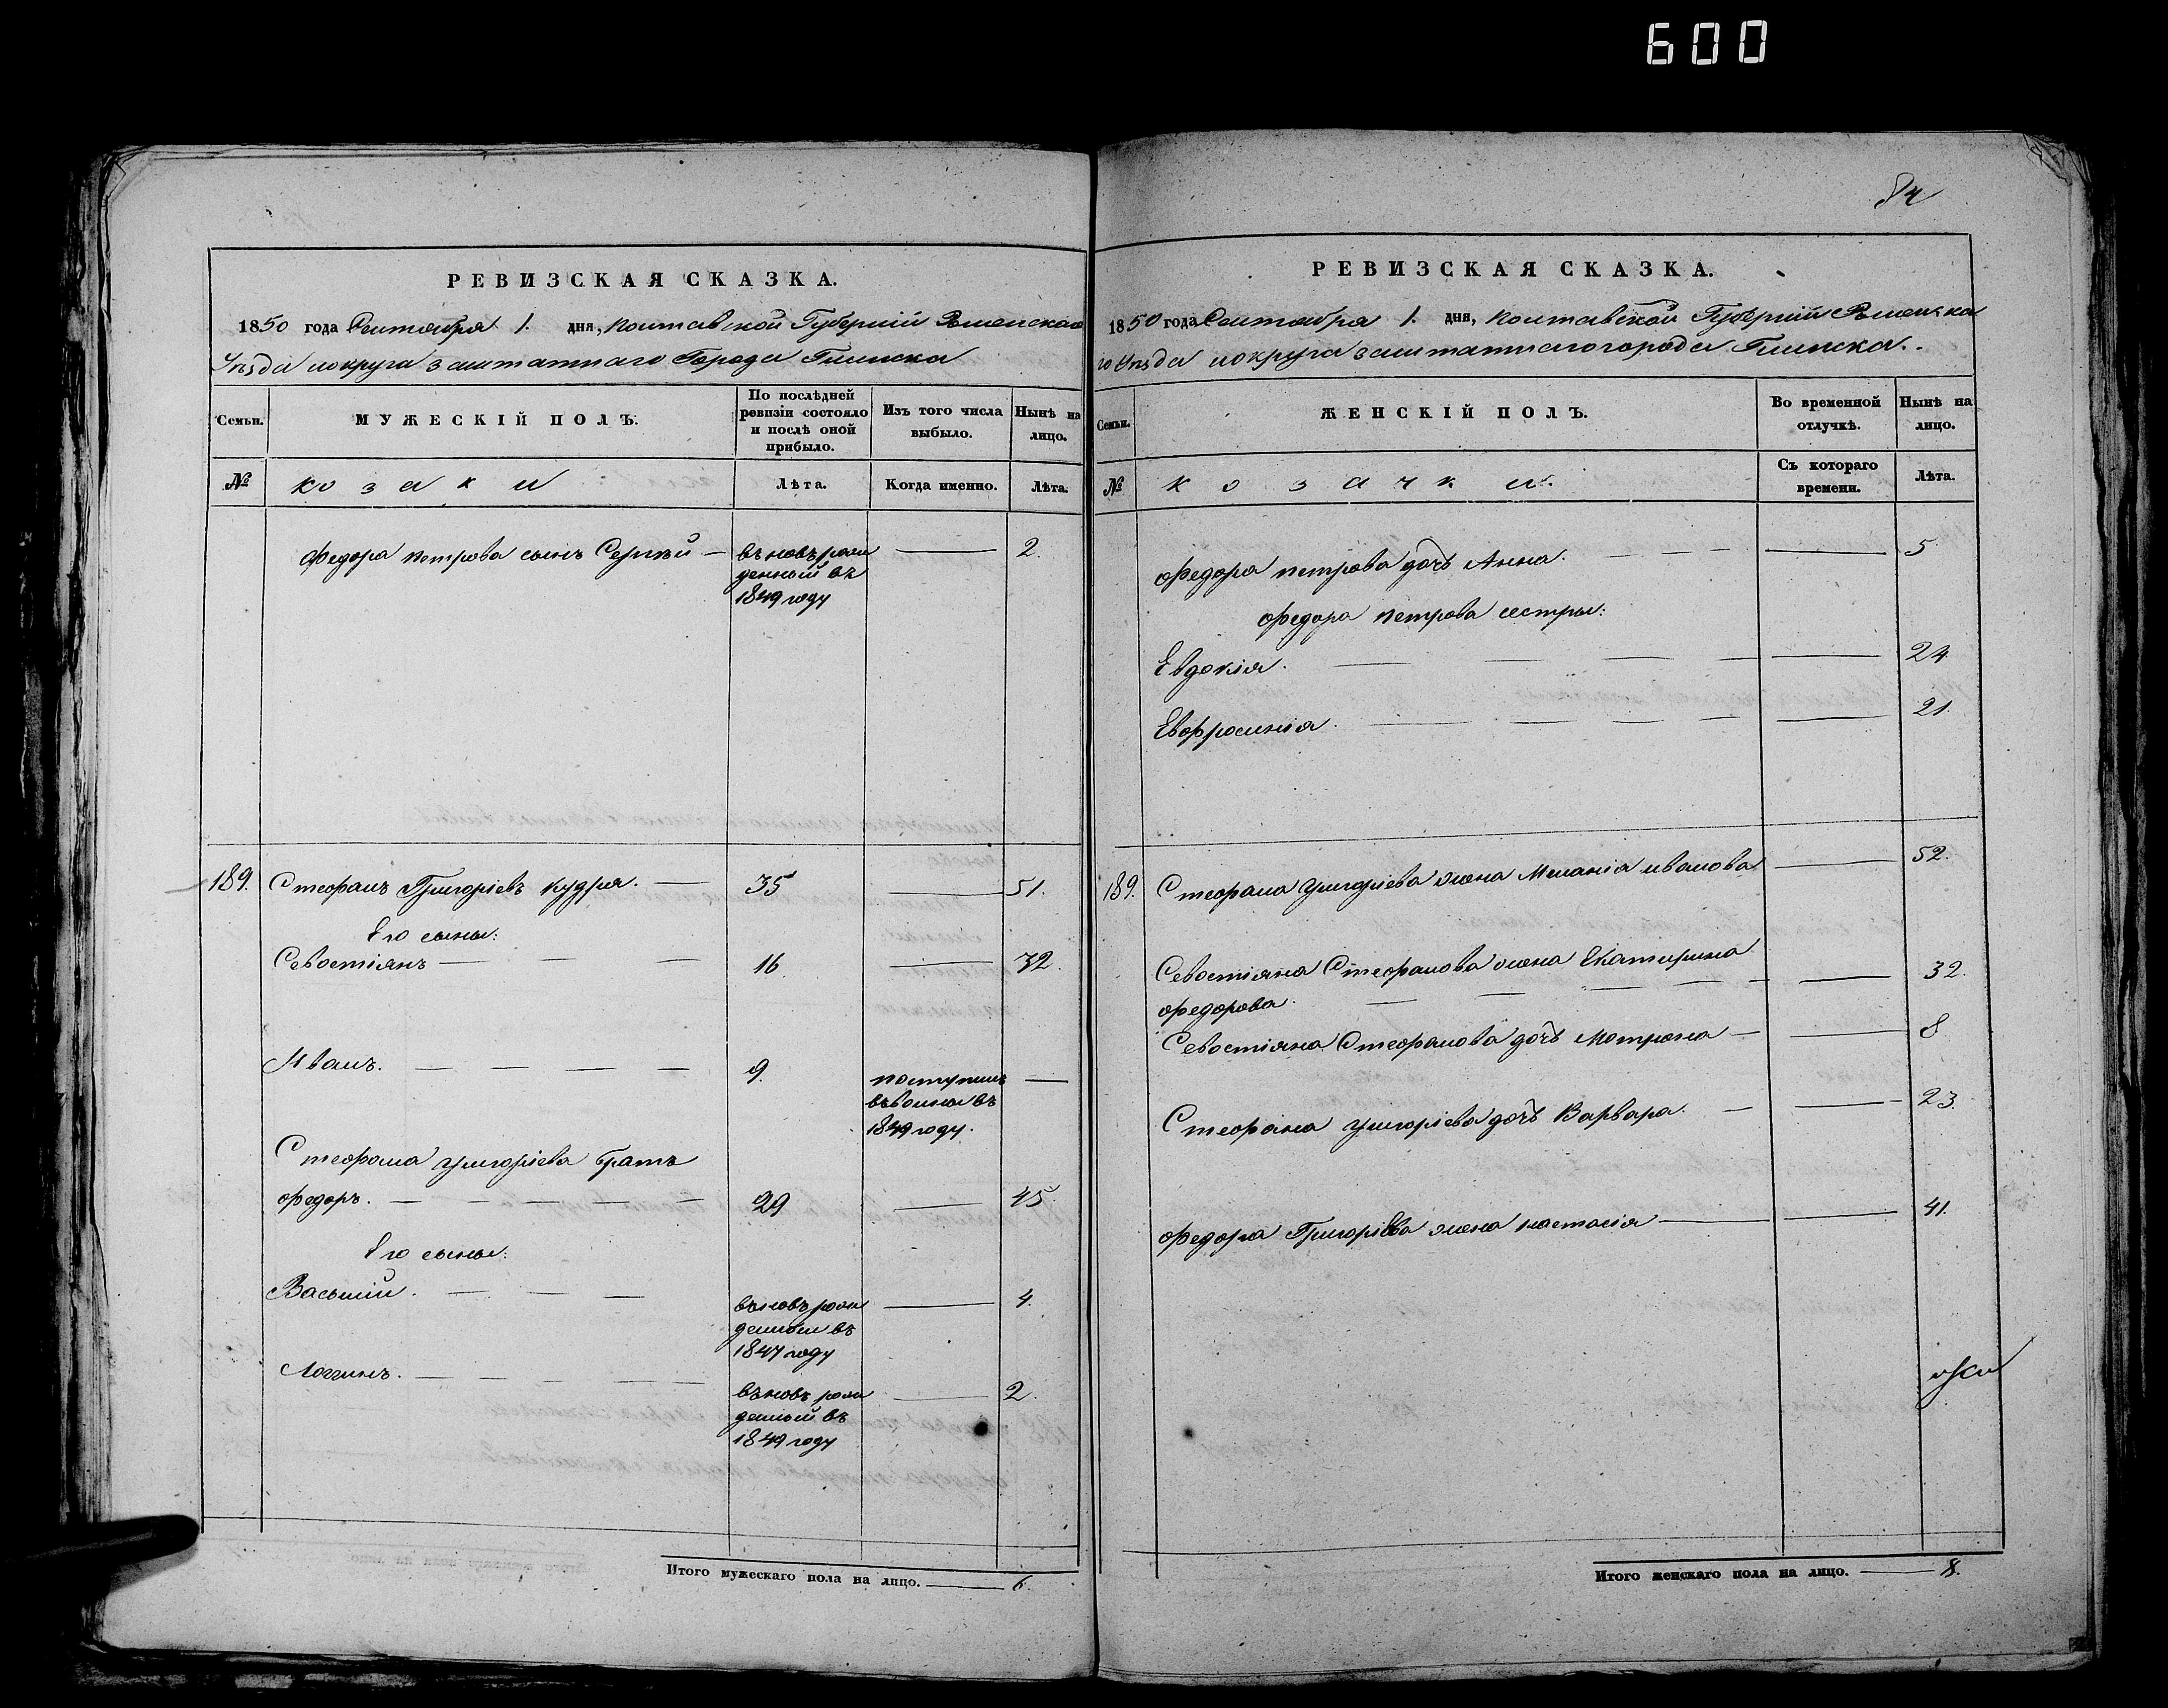 600
84
РЕВИЗСКАЯ СКАЗКА.
1850 года Сентября 1. дня, Полтавской Губерніи Роменскаго
Уѣзда округа заштатнаго Города Глинска
Семьи.
МУЖЕСКІЙ ПОЛЪ.
По послѣдней ревизіи состояло и послѣ оной прибыло.
Изъ того числа выбыло.
Нынѣ на лицо.
№
козаки
Лѣта.
Когда именно.
Лѣта.
Федора петрова сынъ Сергѣй — вновь рож 2.
денный въ
1849 году
189. Стефанъ Григоріевъ кудря. — 35 — 51.
Его сыны:
Севостіянъ — 16 — 32.
Иванъ. — 9. поступилъ —
въ
1849 году.
Стефана григоріева братъ
федоръ. — 29 — 45.
Его сыны:
Василій. — вновь рож — 4.
денный въ
1847 году
Логгинъ. — вновь рож — 2.
денный въ
1849 году
Итого мужескаго пола на лицо. — 6.
РЕВИЗСКАЯ СКАЗКА.
1850 года Сентября 1. дня, Полтавской Губерніи Роменска
го Уѣзда округа заштатнаго города Глинска.
Семьи.
ЖЕНСКІЙ ПОЛЪ.
Во временной отлучкѣ.
Нынѣ на лицо.
№
козачки.
Съ котораго времени.
Лѣта.
Федора петрова дочь Анна. — 5
Федора петрова сестры:
Евдокія. — 24
Евфросинія. — 21.
189. Стефана григоріева жена Меланія иванова — 52.
Севостіяна Стефанова жена Екатирина
федорова. — 32.
Севостіяна Стефанова дочь Мотрона — 8
Стефана григоріева дочь Варвара. — 23.
Федора Григоріева жена настасія — 41.
Итого женскаго пола на лицо. — 8.